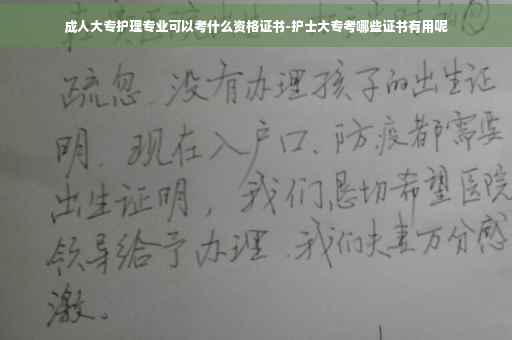 成人大专护理专业可以考什么资格证书-护士大专考哪些证书有用呢
疏忽、没有办理孩子的出生证
明、现在入户口、防疫都需要
出生证明，我们恳切希望医院
领导给予办理、我们夫妻万分感
激。